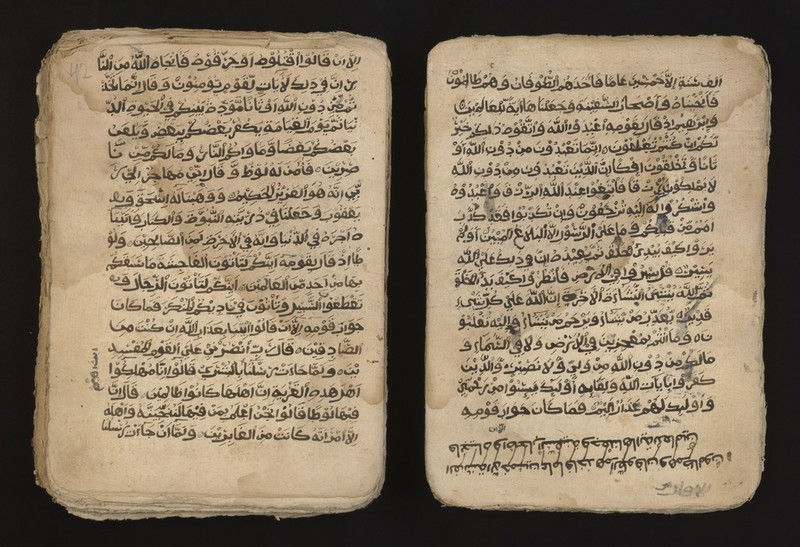 الف سنة الا خمسين عاما فاخذهم الطوفان وهم ظالمون
فانجيناه واصحاب السفينة وجعلناها اية للعالمين
وابرهيم اذ قال لقومه اعبدوا الله واتقوه ذلكم خير
لكم ان كنتم تعلمون انما تعبدون من دون الله او
ثانا وتخلقون افكا ان الذين تعبدون من دون الله
لا يملكون لكم رزقا فابتغوا عند الله الرزق واعبدوه
واشكروا له اليه ترجعون وان تكذبوا فقد كذب
امم من قبلكم وما على الرسول الا البلاغ المبين اولم
يروا كيف يبدئ الله الخلق ثم يعيده ان ذلك على الله
يسير قل سيروا في الارض فانظروا كيف بدأ الخلق
ثم الله ينشئ النشأة الاخرة ان الله على كل شيء
قدير يعذب من يشاء ويرحم من يشاء واليه تقلبو
ن وما انتم بمعجزين في الارض ولا في السماء و
مالكم من دون الله من ولي ولا نصير والذين
كفروا بايات الله ولقائه اولئك يئسوا من رحمتي
واولئك لهم عذاب اليم فما كان جواب قومه
الا ان
الف سنة الا خمسين عاما فاخذهم الطوفان وهم ظالمون
فانجيناه واصحاب السفينة وجعلناها اية للعالمين
42
الا ان قالوا اقتلوه او حرقوه فانجاه الله من النا
ر ان في ذلك لايات لقوم يؤمنون وقال انما اتخذ
تم من دون الله اوثانا مودة بينكم في الحيوة الد
نيا ثم يوم القيامة يكفر بعضكم ببعض ويلعن
بعضكم بعضا وماويكم النار ومالكم من نا
صرين فامن له لوط وقال اني مهاجر الى ر
بي انه هو العزيز الحكيم ووهبنا له اسحق و
يعقوب وجعلنا في ذريته النبوة والكتاب واتينا
ه اجره في الدنيا وانه في الاخرة من الصالحين ولو
طا اذ قال لقومه ائنكم لتاتون الفاحشة ما سبقكم
بها من احد من العالمين ائنكم لتاتون الرجال و
تقطعون السبيل وتاتون في ناديكم المنكر فما كان
جواب قومه الا ان قالوا ائتنا بعذاب الله ان كنت من
الصادقين قال رب انصرني على القوم المفسد
ين ولما جاءت رسلنا ابرهيم بالبشرى قالوا انا مهلكوا
اهل هذه القرية ان اهلها كانوا ظالمين قال ان
فيها لوطا قالوا نحن اعلم بمن فيها لننجينه واهله
الا امراته كانت من الغابرين ولما ان جاءت رسلنا